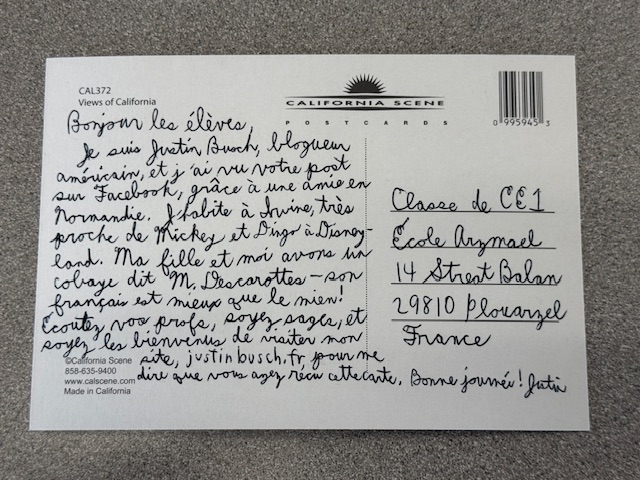 CAL372
Views of California
CALIFORNIA SCENE
POSTCARDS
0 995945 3
Bonjour les élèves,
Je suis Justin Busch, blogueur
américain, et j'ai vu votre post
sur Facebook, grâce à une amie en
Normandie. J'habite à Irvine, très
proche de Mickey et Dingo à Disney-
land. Ma fille et moi avons un
cobaye dit M. Descarottes – son
français est mieux que le mien!
Écoutez vos profs, soyez sages, et
soyez les bienvenus de visiter mon
site, justinbusch.fr, pour me
dire que vous avez reçu cette carte. Bonne journée! Justin
Classe de CE1
École Arzmael
14 Streat Balan
29810 Plouarzel
France
©California Scene
858-635-9400
www.calscene.com
Made in California